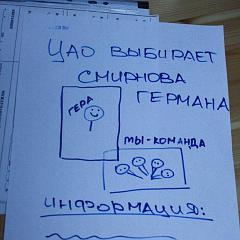 ЦАО ВЫБИРАЕТ
СМИРНОВА
ГЕРМАНА
ГЕРА
МЫ-КОМАНДА
ИНФОРМАЦИЯ: